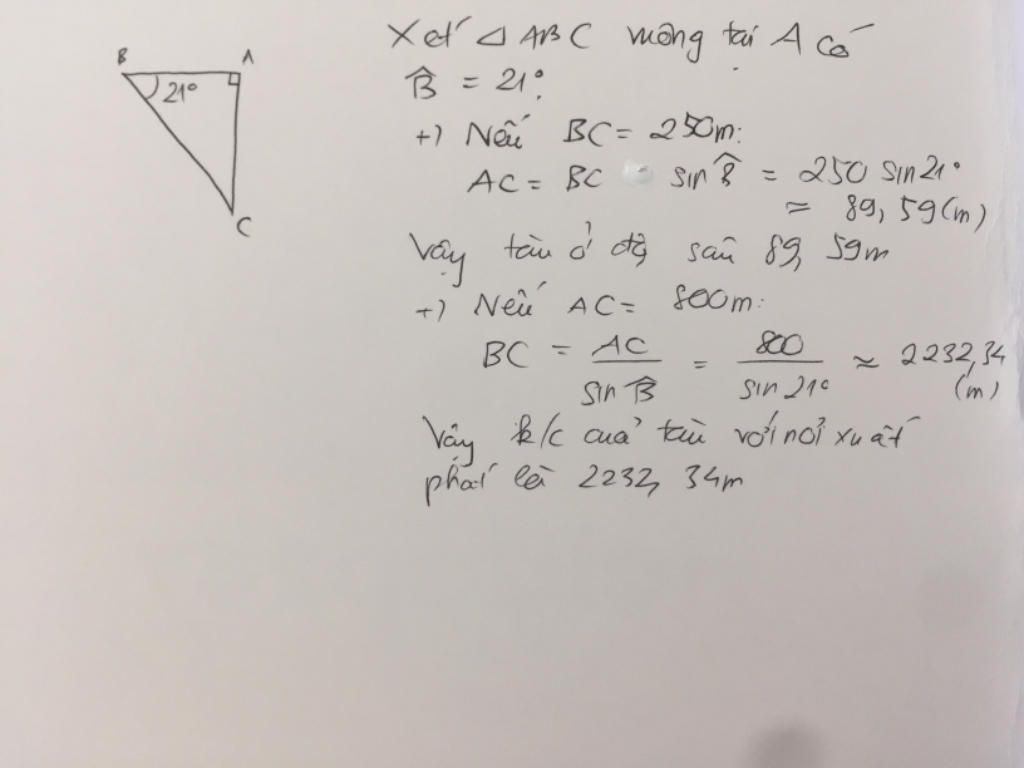 B A
21°
C
Xét △ABC vuông tại A có
B̂ = 21°.
+) Nếu BC = 250m:
AC = BC · sin B̂ = 250 sin21°
≈ 89,59(m)
Vậy tàu ở độ sâu 89,59m
+) Nếu AC = 800m:
BC = AC / sin B̂ = 800 / sin 21° ≈ 2232,34
(m)
Vậy k/c của tàu với nơi xuất
phát là 2232,34m